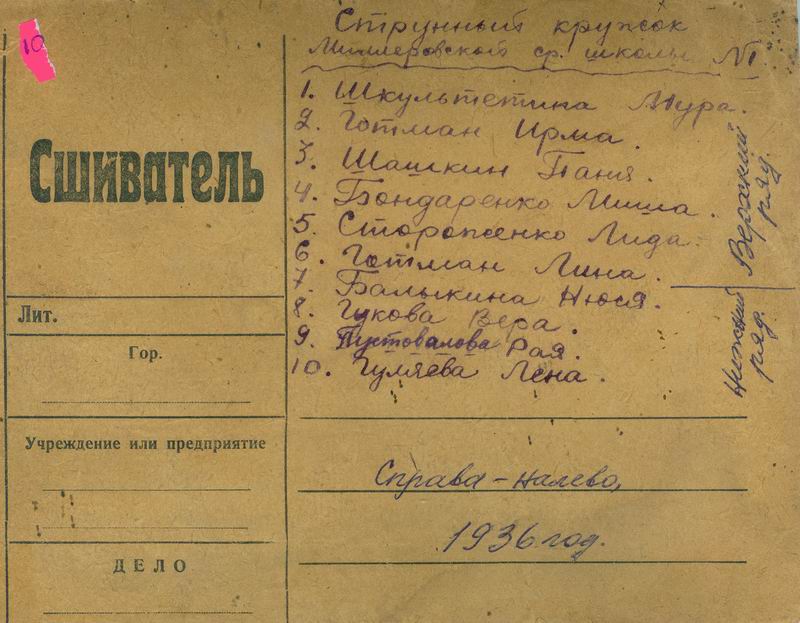 10
Сшиватель
Лит.
Гор.
Учреждение или предприятие
ДЕЛО
Струнный кружок
Миллеровской ср. школы №1
1. Шкультетина Мура.
2. Готман Ирма.
3. Шашкин Паня.
4. Бондаренко Миша.
5. Стороженко Лида.
6. Готман Лина.
7. Балыкина Нюся.
8. Гукова Вера.
9. Пустовалова Рая.
10. Гуляева Лена.
Верхний
ряд.
Нижний
ряд.
Справа – налево,
1936 год.